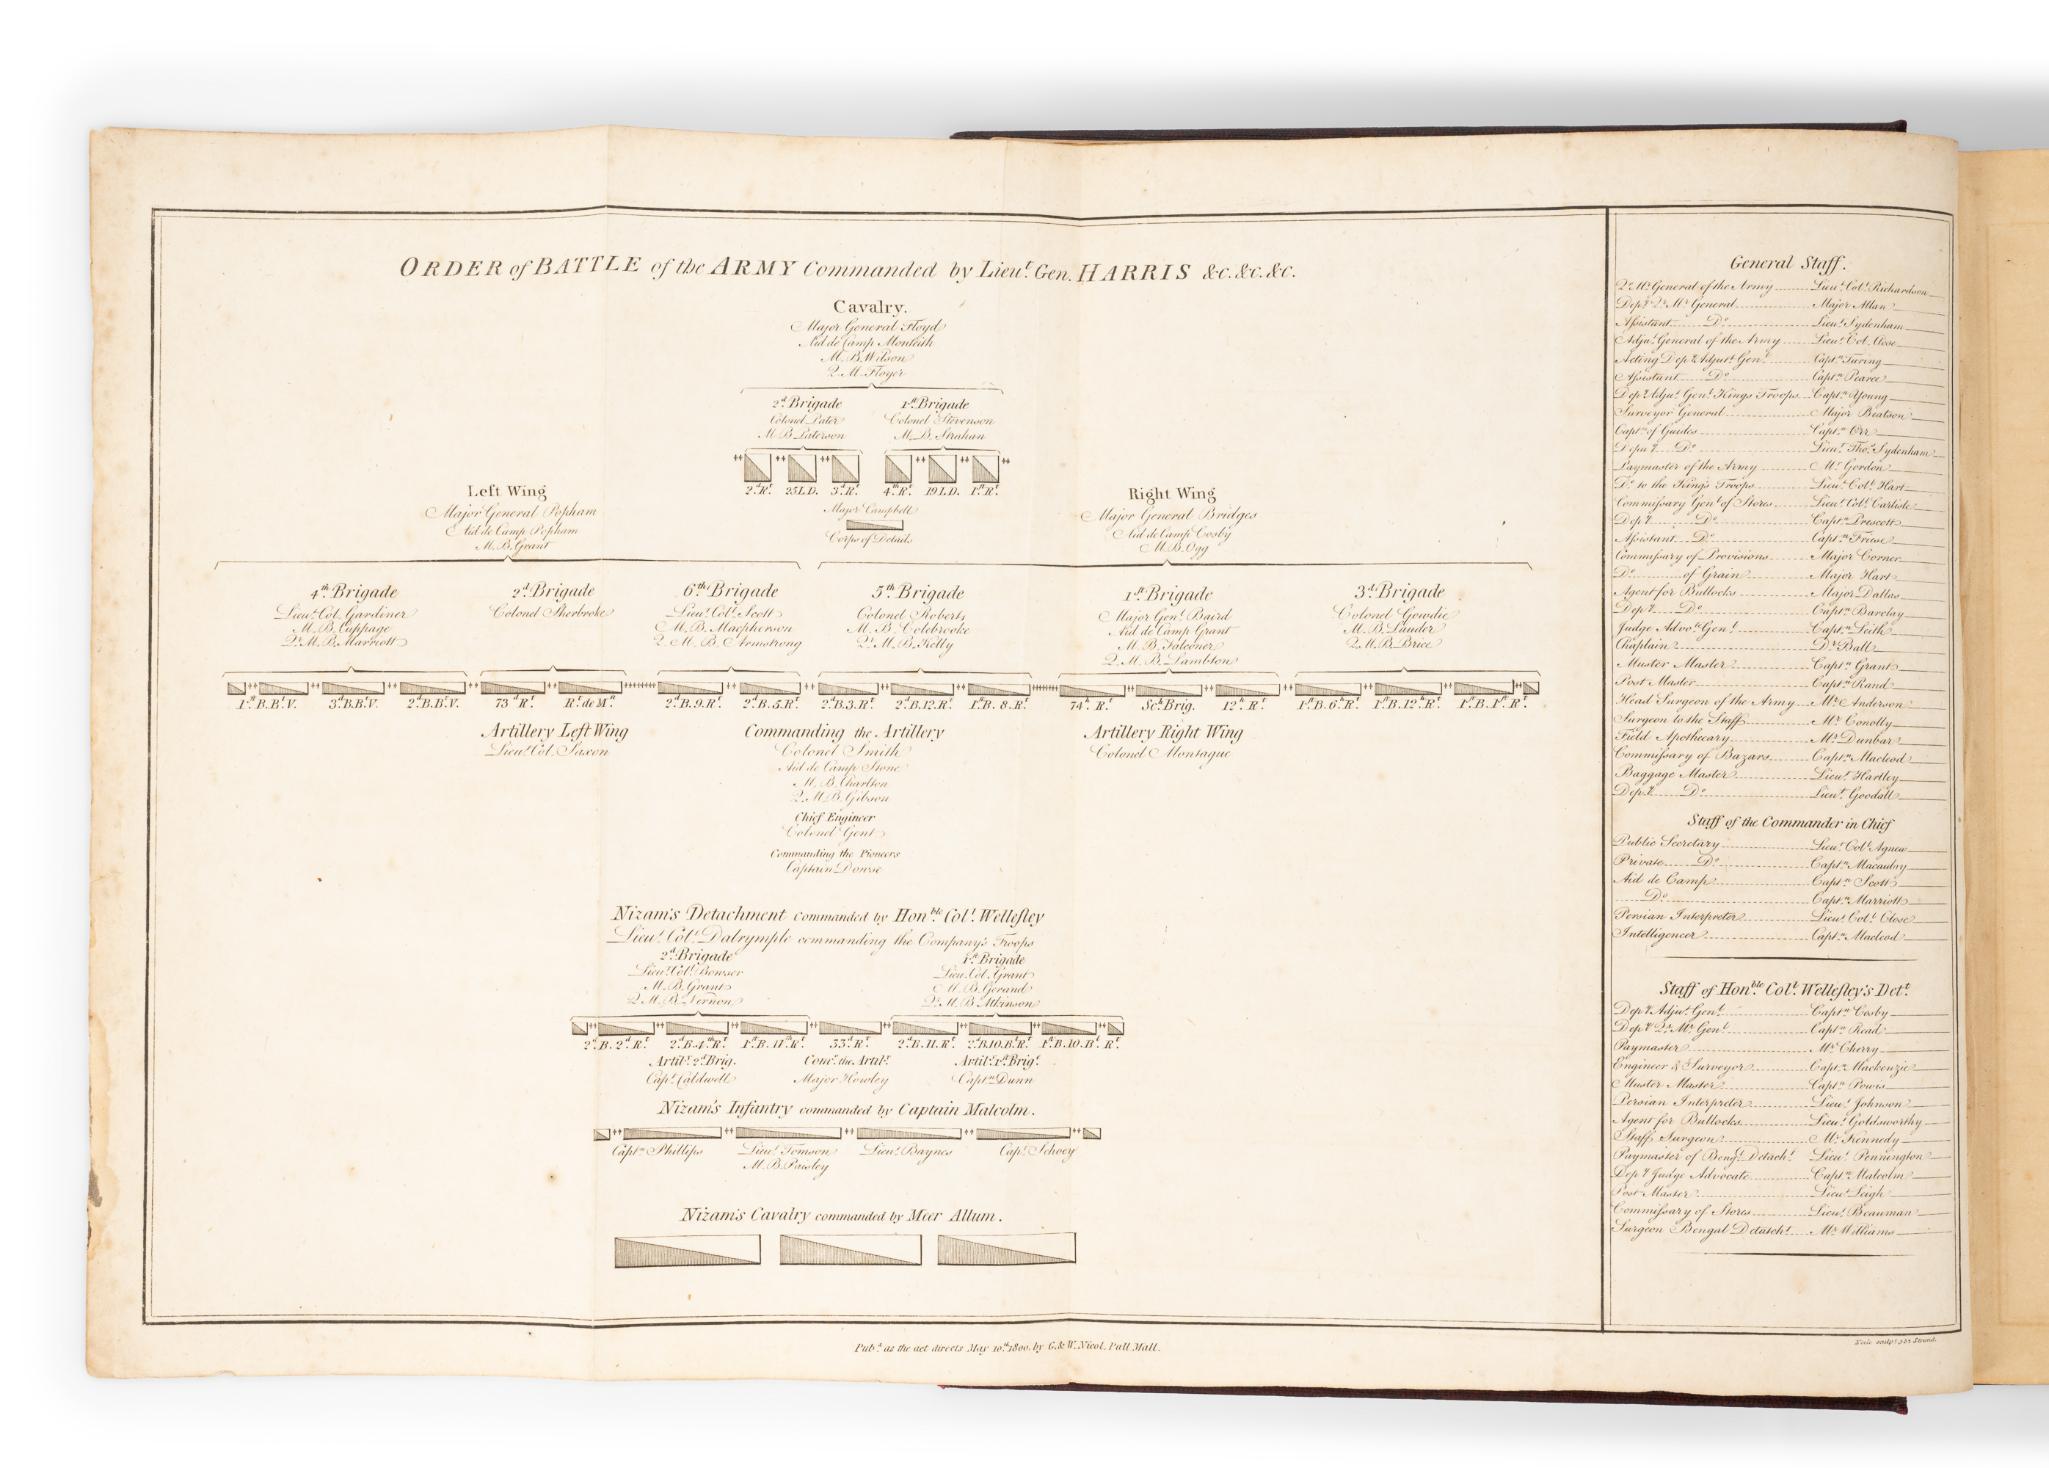 ORDER of BATTLE of the ARMY Commanded by Lieut. Gen. HARRIS &c. &c. &c.
Cavalry.
Major General Floyd
Aid de Camp Monteith
M. B. Wilson
Q. M. Floyer
2d. Brigade
Colonel Pater
M. B. Paterson
1st. Brigade
Colonel Stevenson
M. B. Strahan
2d. Rt. 25 L.D. 3d. Rt. 4th. Rt. 19 L.D. 1st. Rt.
Major Campbell
Corps of Details
Left Wing
Major General Popham
Aid de Camp Popham
M. B. Grant
Right Wing
Major General Bridges
Aid de Camp Cosby
M. B. Ogg
4th. Brigade
Lieut. Col. Gardiner
M. B. Cuppage
Qr. M. B. Marriott
2d. Brigade
Colonel Sherbroke
6th. Brigade
Lieut. Colt. Scott
M. B. Macpherson
Q. M. B. Armstrong
5th. Brigade
Colonel Roberts
M. B. Colebrooke
Qr. M. B. Kelly
1st. Brigade
Major Genl. Baird
Aid de Camp Grant
M. B. Falconer
Q. M. B. Lambton
3d. Brigade
Colonel Gowdie
M. B. Lauder
Q. M. B. Brice
1st. B. Bl. V. 3d. B. Bl. V. 2d. B. Bl. V. 73d. Rt. Rt. de Mn. 2d. B. 9. Rt. 2d. B. 5. Rt. 2d. B. 3. Rt. 2d. B. 12. Rt. 1st. B. 8. Rt. 74th. Rt. Sch. Brig. 12th. Rt. 1st. B. 6th. Rt. 1st. B. 12th. Rt. 1st. B. 1st. Rt.
Artillery Left Wing
Lieut. Col. Saxon
Commanding the Artillery
Colonel Smith
Aid de Camp Stone
M. B. Charlton
Q. M. B. Gibson
Chief Engineer
Colonel Gent
Commanding the Pioneers
Captain Dowse
Artillery Right Wing
Colonel Montague
Nizam's Detachment commanded by Honble. Colt. Wellesley
Lieut. Colt. Dalrymple commanding the Company's Troops
2d. Brigade
Lieut. Colt. Bowser
M. B. Grant
Q. M. B. Vernon
1st. Brigade
Lieut. Col. Grant
M. B. Gerand
Qr. M. B. Atkinson
2d. B. 2d. Rt. 2d. B. 4th. Rt. 1st. B. 11th. Rt. 33d. Rt. 2d. B. 11. Rt. 2d. B. 10. Bl. Rt. 1st. B. 10. Bl. Rt.
Artily. 2d. Brig.
Capt. Caldwell
Comg. the Artily.
Major Howley
Artily. 1st. Brigt.
Captn. Dunn
Nizam's Infantry commanded by Captain Malcolm.
Captn. Phillips
Lieut. Tomson
M. B. Paisley
Lieut. Baynes
Capt. Schoey
Nizam's Cavalry commanded by Meer Allum.
General Staff.
Qr. Mr. General of the Army Lieut. Colt. Richardson
Depy. Qr. Mr. General Major Allan
Assistant Do. Lieut. Sydenham
Adjut. General of the Army Lieut. Col. Close
Acting Depy. Adjut. Genl. Captn. Turing
Assistant Do. Captn. Pearce
Depy. Adjut. Genl. Kings Troops Captn. Young
Surveyor General Major Beatson
Captn. of Guides Captn. Orr
Deputy Do. Lieut. Thos. Sydenham
Paymaster of the Army Mr. Gordon
Do. to the Kings Troops Lieut. Colt. Hart
Commissary Genl. of Stores Lieut. Colt. Carlisle
Depy. Do. Captn. Prescott
Assistant Do. Captn. Friese
Commissary of Provisions Major Corner
Do. of Grain Major Hart
Agent for Bullocks Major Dallas
Depy. Do. Captn. Barclay
Judge Advoc. Genl. Captn. Leith
Chaplain Dr. Ball
Muster Master Captn. Grant
Post Master Captn. Rand
Head Surgeon of the Army Mr. Anderson
Surgeon to the Staff Mr. Conolly
Field Apothecary Mr. Dunbar
Commissary of Bazars Captn. Macleod
Baggage Master Lieut. Hartley
Depy. Do. Lieut. Goodall
Staff of the Commander in Chief
Public Secretary Lieut. Colt. Agnew
Private Do. Captn. Macaulay
Aid de Camp Captn. Scott
Do. Captn. Marriott
Persian Interpreter Lieut. Colt. Close
Intelligencer Captn. Macleod
Staff of Honble. Colt. Wellesley's Dett.
Depy. Adjut. Genl. Captn. Cosby
Depy. Qr. Mr. Genl. Captn. Read
Paymaster Mr. Cherry
Engineer & Surveyor Captn. Mackenzie
Muster Master Captn. Powis
Persian Interpreter Lieut. Johnson
Agent for Bullocks Lieut. Goldsworthy
Staff Surgeon Mr. Kennedy
Paymaster of Bengl. Detacht. Lieut. Pennington
Depy. Judge Advocate Captn. Malcolm
Post Master Lieut. Leigh
Commissary of Stores Lieut. Beauman
Surgeon Bengal Detacht. Mr. Williams
Pubd. as the act directs May 10th. 1800, by G. & W. Nicol, Pall Mall.
Neele sculpt. 352 Strand.